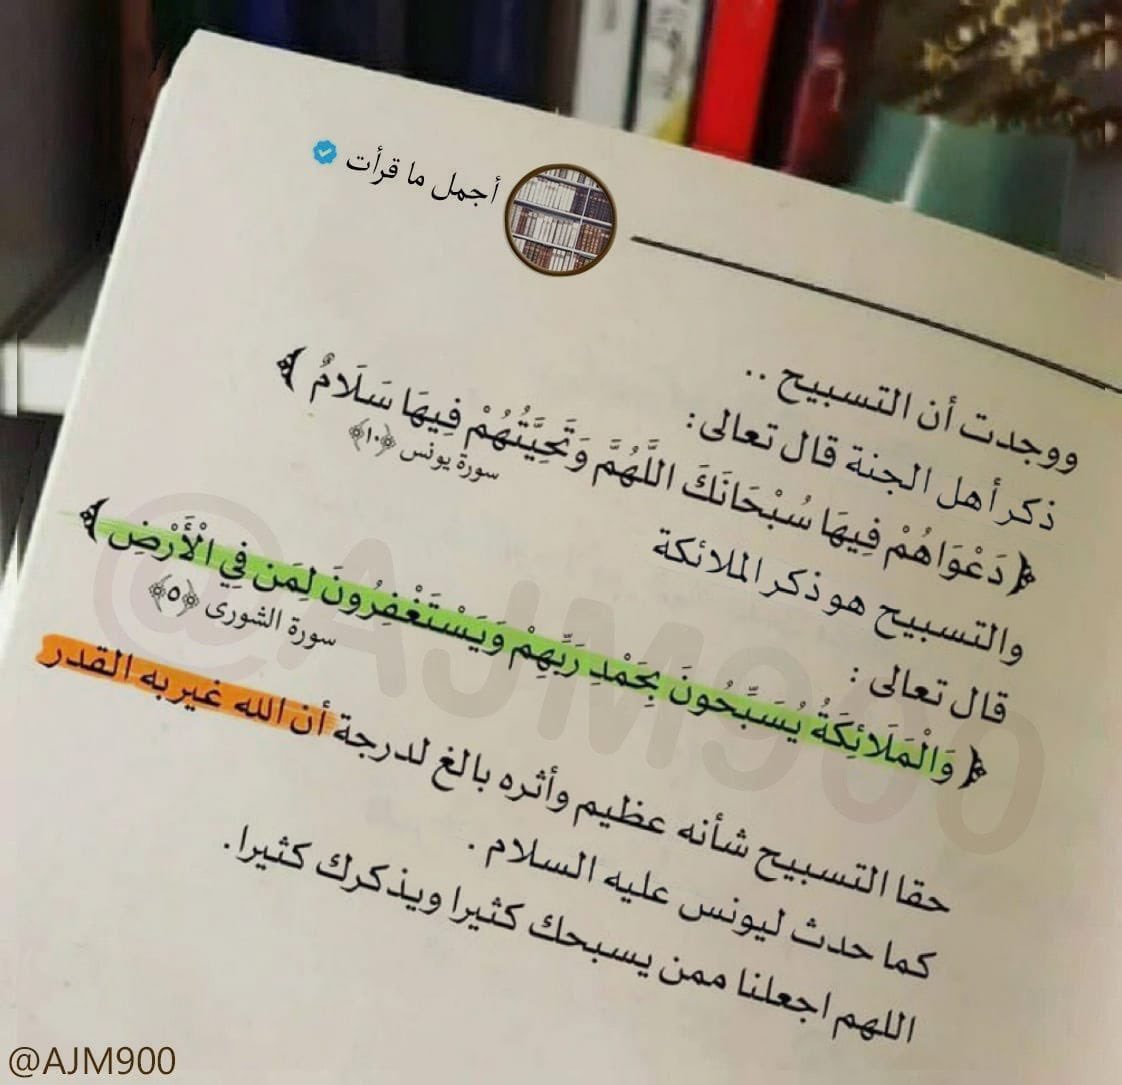 أجمل ما قرأت
ووجدت أن التسبيح ..
ذكر أهل الجنة قال تعالى:
﴿ دَعْوَاهُمْ فِيهَا سُبْحَانَكَ اللَّهُمَّ وَتَحِيَّتُهُمْ فِيهَا سَلَامٌ ﴾
سورة يونس ﴿١٠﴾
والتسبيح هو ذكر الملائكة
قال تعالى :
﴿ وَالْمَلَائِكَةُ يُسَبِّحُونَ بِحَمْدِ رَبِّهِمْ وَيَسْتَغْفِرُونَ لِمَن فِي الْأَرْضِ ﴾
سورة الشورى ﴿٥﴾
حقا التسبيح شأنه عظيم وأثره بالغ لدرجة أن الله غير به القدر
كما حدث ليونس عليه السلام .
اللهم اجعلنا ممن يسبحك كثيرا ويذكرك كثيرا.
@AJM900
@AJM900